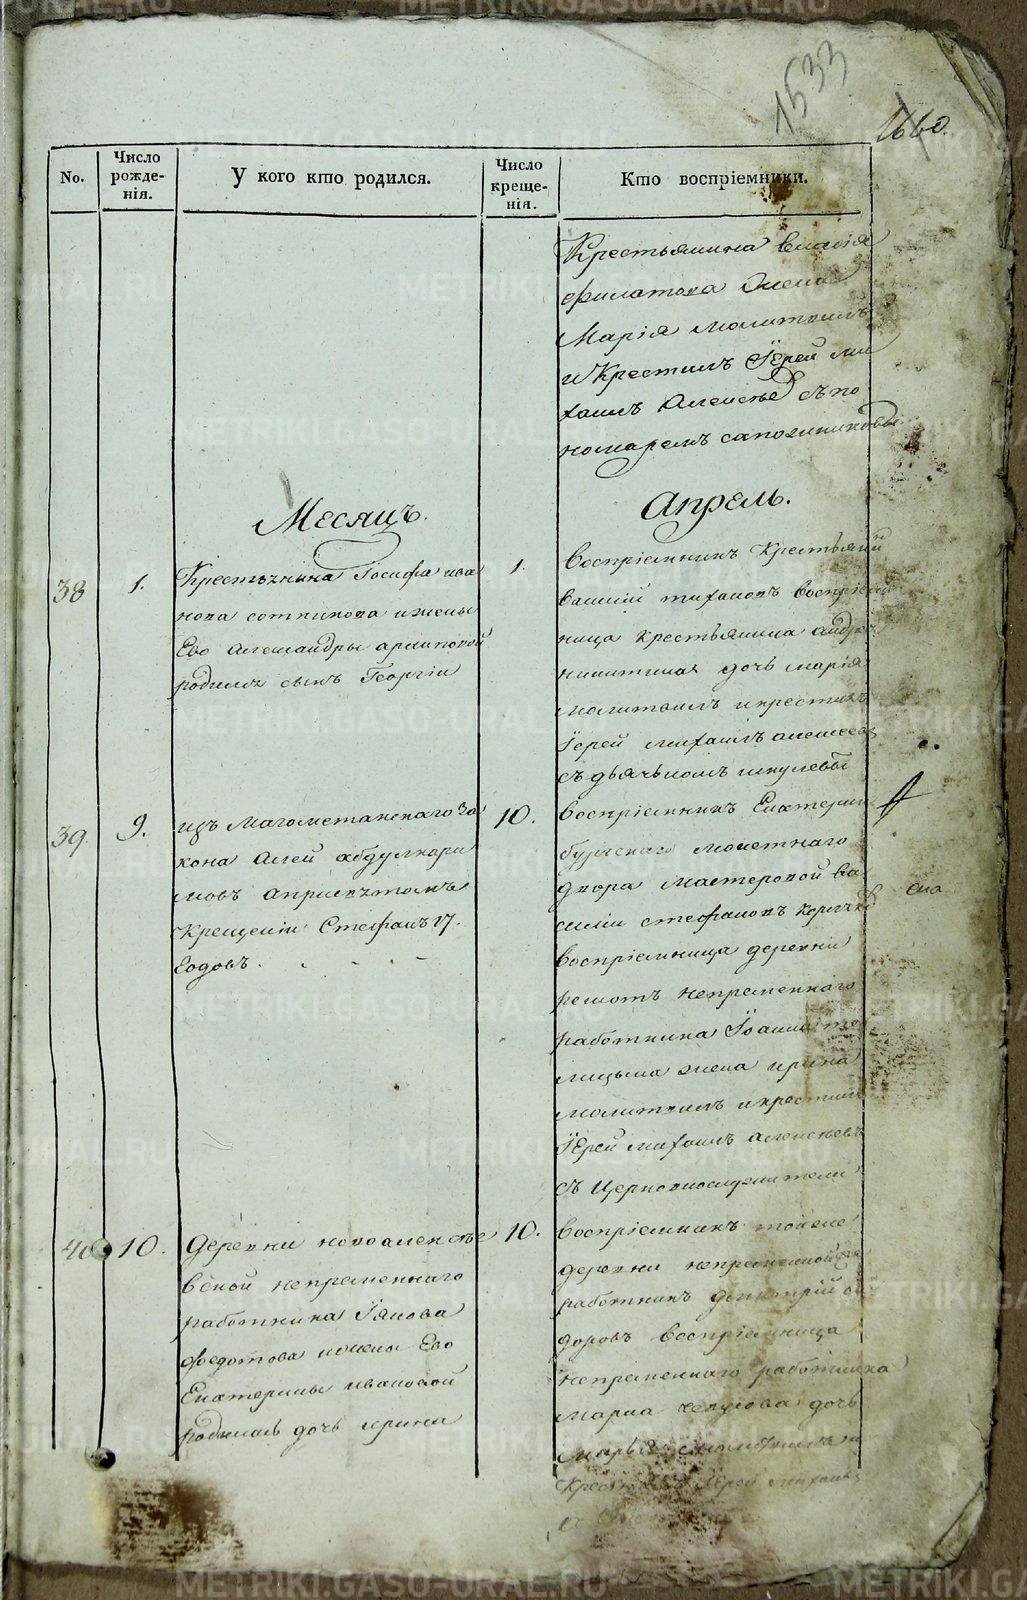 1533
1660.
No.
Число рожде-нія.
У кого кто родился.
Число креще-нія.
Кто воспріемники.
Крестьянина
филатова жена
Марія молитвилъ
и Крестилъ Іерей ми
хаилъ Алексѣевъ съ по
номаремъ сапожниковы
Месяцъ.
Апрель.
38
1.
Крестьянина Іосифа ива
нова сотникова и жены
Его Александры архиповой
родился сынъ Георгіи
1.
воспріемникъ Крестьянин
василій тихановъ воспріем
ница крестьянина андрея
никитина дочь марія
молитвилъ и крестилъ
Іерей михаилъ алексеевъ
съ дьячькомъ
39.
9.
изъ Магометанскаго За
кона Алей абдулкари
мовъ априсвятомъ
Крещеніи Стефанъ 17.
Годовъ.
10.
воспріемникъ Екатерин
бургскаго монетнаго
двора мастеровой ва
силіи стефановъ
воспріемница деревни
решотъ непременнаго
работника Іоанна
жена ирина
молитвилъ и крестилъ
Іерей михаилъ алексѣевъ
съ Церковнослужители
40
10.
деревни новоалексѣе
вской непременнаго
работника Іакова
федотова и жены Его
Екатерины ивановой
родилась дочь ирина
10.
воспріемникъ тойже
деревни непременной
работникъ димитрій си
доровъ воспріемница
непременнаго работника
марка дочь
марья молитвилъ и
Крестилъ Іерей михаилъ
METRIKI.GASO-URAL.RU